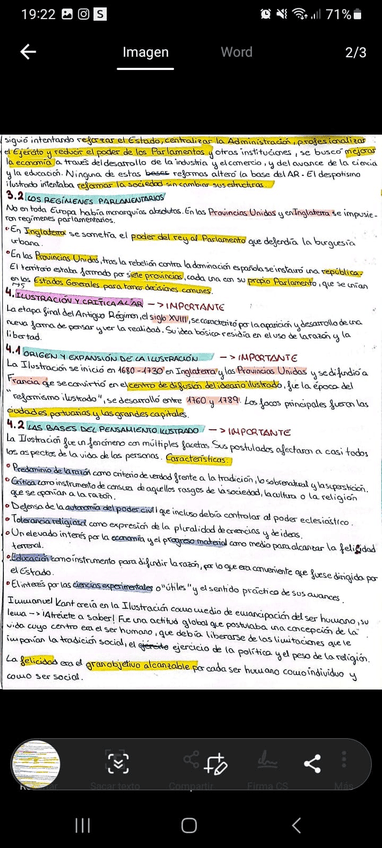 19:22
71%
Imagen
Word
2/3
siguió intentando reforzar el Estado, centralizar la Administración, profesionalizar
el Ejército y reducir el poder de los Parlamentos y otras instituciones, se buscó mejorar
la economía a través del desarrollo de la industria y el comercio, y del avance de la ciencia
y la educación. Ninguna de estas reformas alteró la base del AR. El despotismo
ilustrado intentaba reformar la sociedad sin cambiar sus estructuras.
3.2 LOS REGÍMENES PARLAMENTARIOS
No en toda Europa había monarquías absolutas. En las Provincias Unidas y en Inglaterra se impusie-
ron regímenes parlamentarios.
• En Inglaterra se sometía el poder del rey al Parlamento que defendía la burguesía
urbana.
• En las Provincias Unidas, tras la rebelión contra la dominación española se instauró una república.
El territorio estaba formado por siete provincias, cada una con su propio Parlamento, que se unían
en los Estados Generales para tomar decisiones comunes.
4. ILUSTRACIÓN Y CRÍTICA AL AR --> IMPORTANTE
La etapa final del Antiguo Régimen, el siglo XVIII, se caracterizó por la aparición y desarrollo de una
nueva forma de pensar y ver la realidad. Su idea básica residía en el uso de la razón y la
libertad.
4.1 ORIGEN Y EXPANSIÓN DE LA ILUSTRACIÓN --> IMPORTANTE
La Ilustración se inició en 1680-1730 en Inglaterra y las Provincias Unidas y se difundió a
Francia que se convirtió en el centro de difusión del ideario ilustrado, fue la época del
"reformismo ilustrado", se desarrolló entre 1760 y 1789. Los focos principales fueron las
ciudades portuarias y las grandes capitales.
4.2 LAS BASES DEL PENSAMIENTO ILUSTRADO --> IMPORTANTE
La Ilustración fue un fenómeno con múltiples facetas. Sus postulados afectaron a casi todos
los aspectos de la vida de las personas. Características:
• Predominio de la razón como criterio de verdad frente a la tradición, lo sobrenatural y la superstición.
• Crítica como instrumento de censura de aquellos rasgos de la sociedad, la cultura o la religión
que se oponían a la razón.
• Defensa de la autonomía del poder civil que incluso debía controlar al poder eclesiástico.
• Tolerancia religiosa como expresión de la pluralidad de creencias y de ideas.
• Un elevado interés por la economía y el progreso material como medio para alcanzar la felicidad
terrenal.
• Educación como instrumento para difundir la razón, por lo que era conveniente que fuese dirigida por
el Estado.
• El interés por las ciencias experimentales o "útiles" y el sentido práctico de sus avances.
Immanuel Kant creía en la Ilustración como medio de emancipación del ser humano, su
lema --> ¡Atrévete a saber! Fue una actitud global que postulaba una concepción de la
vida cuyo centro era el ser humano, que debía liberarse de las limitaciones que le
imponían la tradición social, el ejercicio de la política y el peso de la religión.
La felicidad era el gran objetivo alcantable por cada ser humano como individuo y
como ser social.
Sacar texto
Compartir
Firma CS
Más